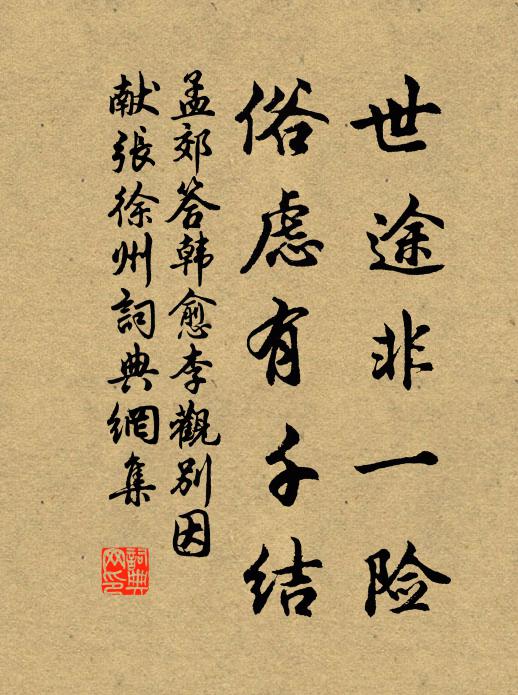 世途非一险
俗虑有千结
孟郊答韩愈李觀别因
献張徐州詞典網集
詞典网印